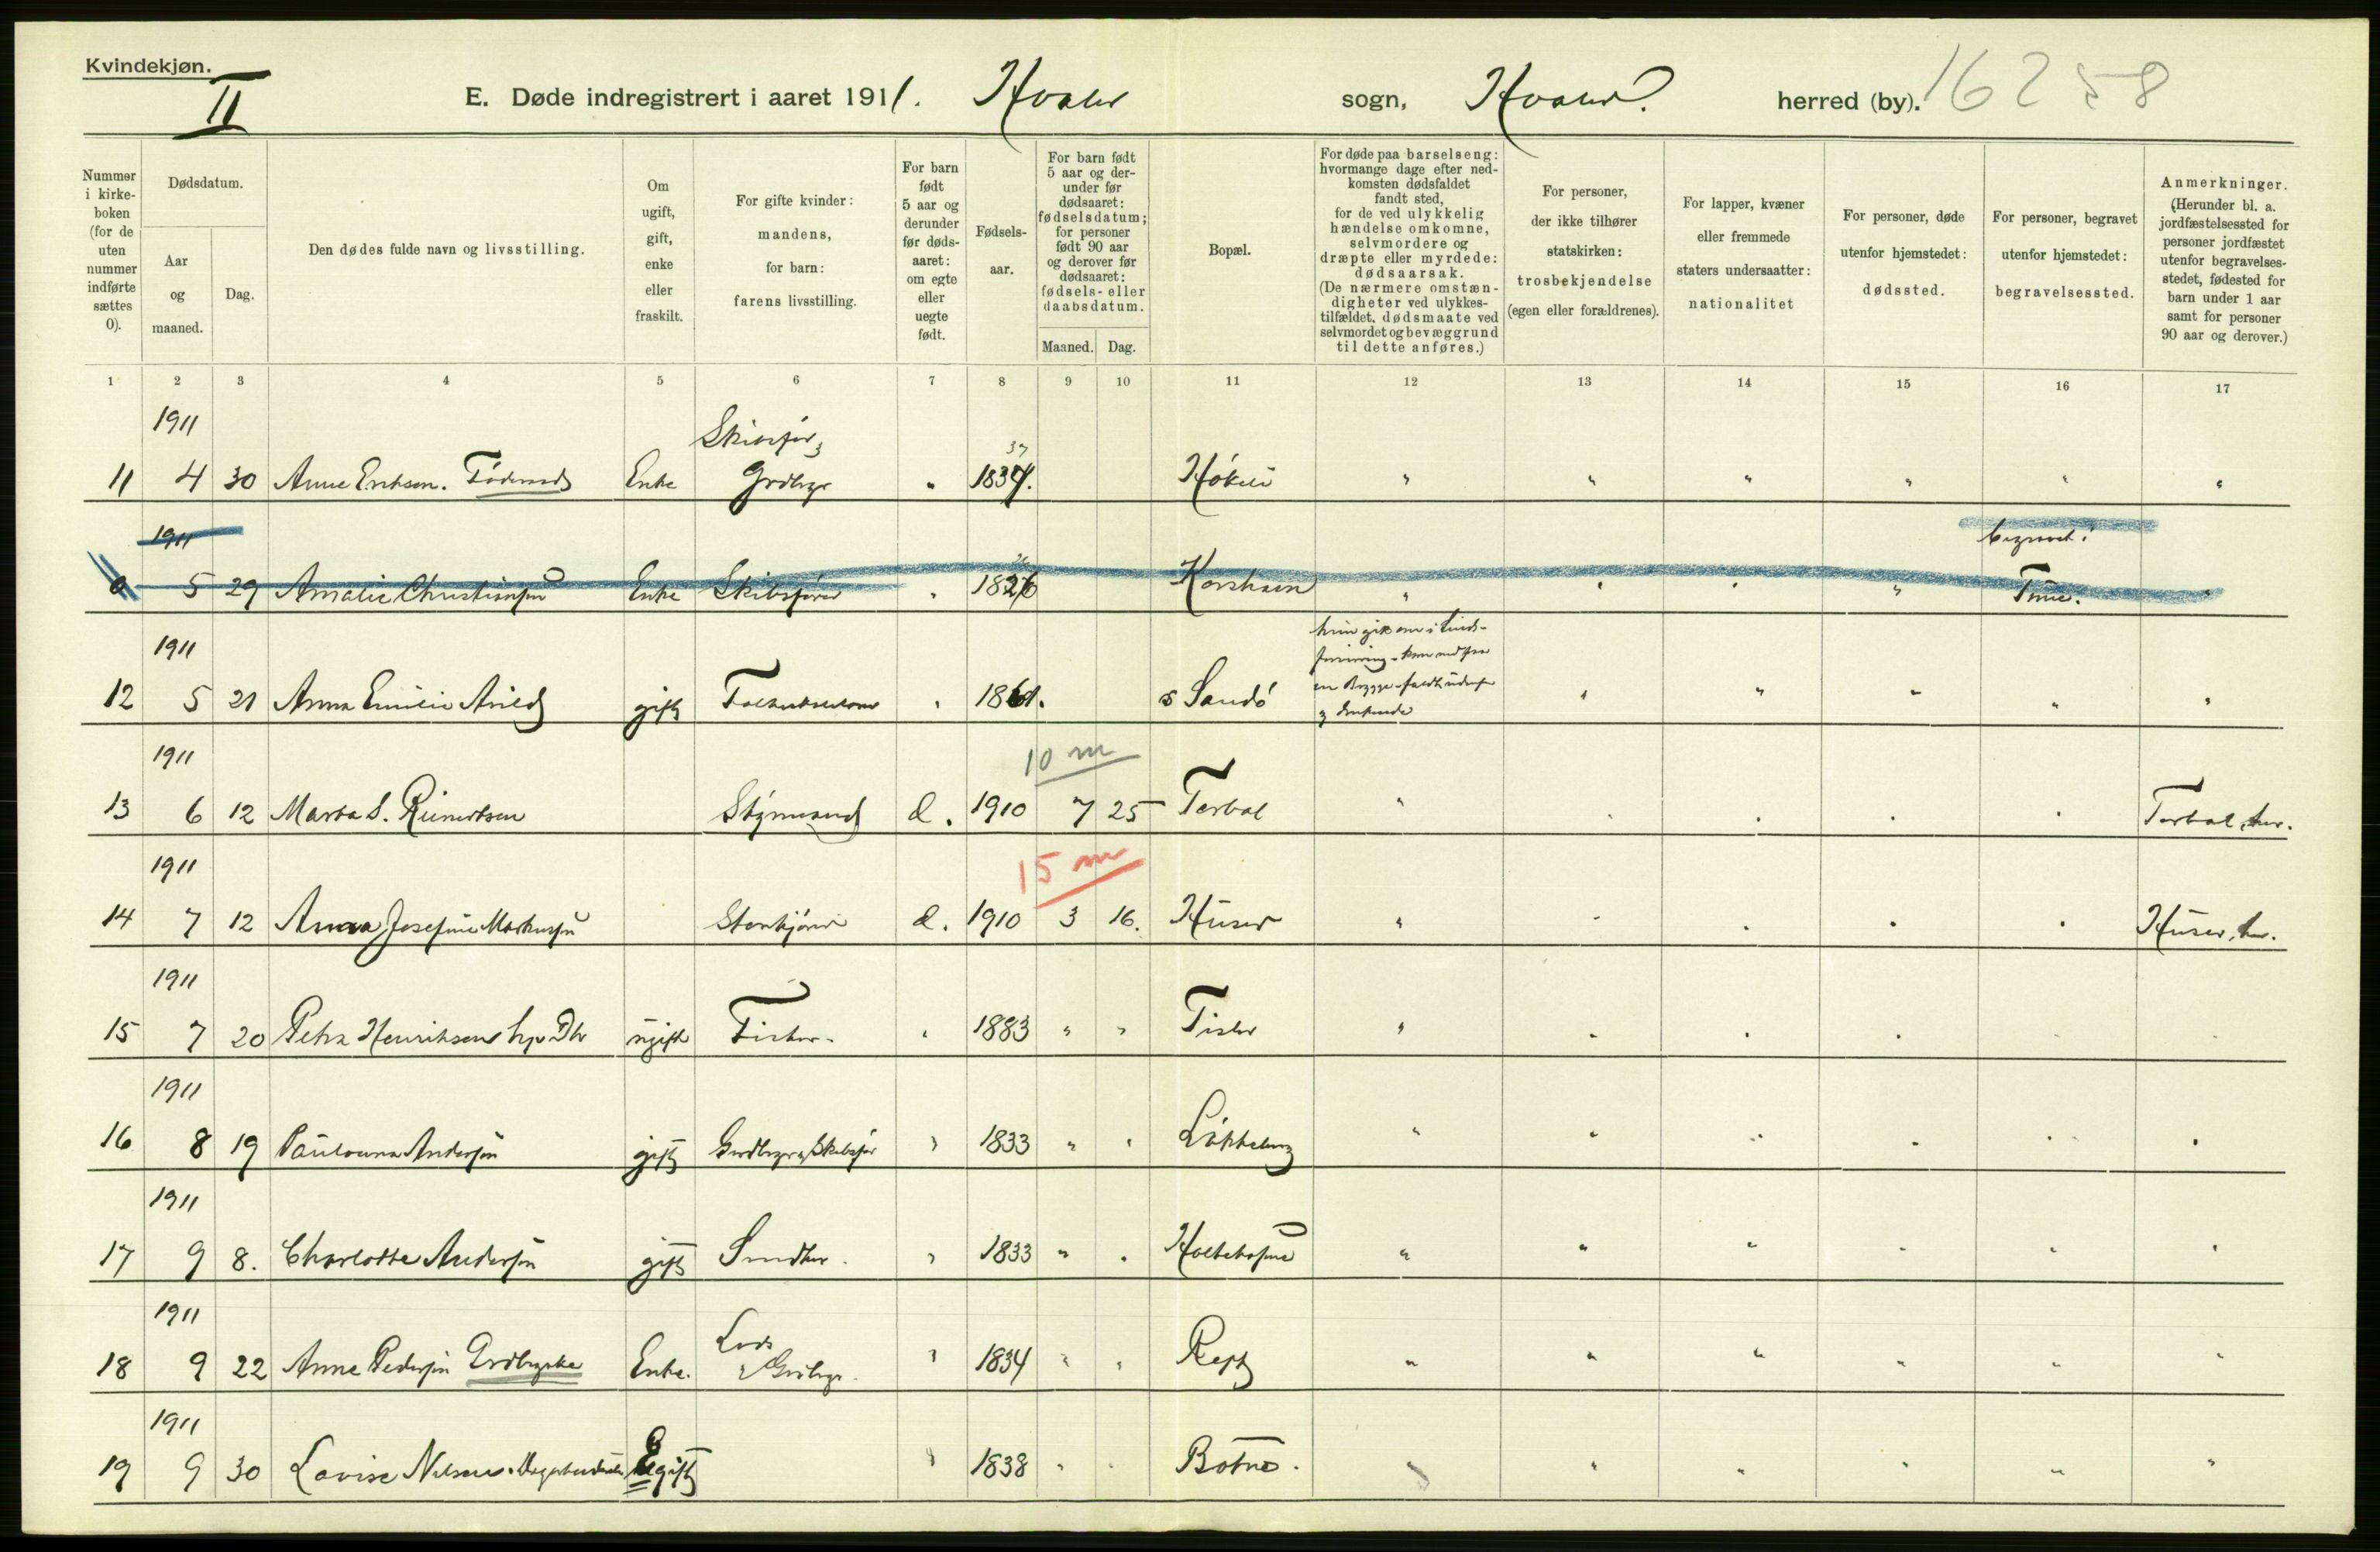 Kvindekjøn.
II
E. Døde indregistrert i aaret 1911. Hvaler sogn, Hvaler. herred (by). 16258
Nummer i kirke-boken (for de uten nummer indførte sættes 0).
Dødsdatum.
Aar og maaned.
Dag.
Den dødes fulde navn og livsstilling.
Om ugift, gift, enke eller fraskilt.
For gifte kvinder: mandens, for barn: farens livsstilling.
For barn født 5 aar og derunder før døds-aaret: om egte eller uegte født.
Fødsels-aar.
For barn født 5 aar og der-under før dødsaaret: fødselsdatum; for personer født 90 aar og derover før dødsaaret: fødsels- eller daabsdatum.
Maaned.
Dag.
Bopæl.
For døde paa barselseng: hvormange dage efter ned-komsten dødsfaldet fandt sted, for de ved ulykkelig hændelse omkomne, selvmordere og dræpte eller myrdede: dødsaarsak. (De nærmere omstæn-digheter ved ulykkes-tilfældet, dødsmaate ved selvmordet og bevæggrund til dette anføres.)
For personer, der ikke tilhører statskirken: trosbekjendelse (egen eller forældrenes).
For lapper, kvæner eller fremmede staters undersaatter: nationalitet
For personer, døde utenfor hjemstedet: dødssted.
For personer, begravet utenfor hjemstedet: begravelsessted.
Anmerkninger. (Herunder bl. a. jordfæstelsessted for personer jordfæstet utenfor begravelses-stedet, fødested for barn under 1 aar samt for personer 90 aar og derover.)
1 2 3 4 5 6 7 8 9 10 11 12 13 14 15 16 17
1911 Skibsfør
37
11 4 30 Anne Eriksen. Enke Grdbrgr " 1834. " " " " " "
1911 begravet i
0 5 29 Amalie Christiansen Enke Skibsfører " 1826 Korshavn " " " " Tune. "
1911 hun gik om i Sinds-
forvirring - kom ned paa
en Brygge - faldt udenfor
12 5 21 Anna Emilie Arild gift " 1861. s Sandö & druknede " " " " "
1911 10 m
13 6 12 Marta S. Reinertsen Stýrmand 1910 7 25 " " " " "
1911 15 m
14 7 12 Anna Josefine Markusen 1910 3 16. Húser " " " " " Húser, hvr.
1911
15 7 20 Petra Henriksen ugift Fisker. " 1883 " " Tisler " " " " " "
1911
16 8 19 Paulovna Andersen gift Grdbrgr & Skibsfør " 1833 " " " " " " " "
1911
17 9 8. Charlotte Andersen gift " 1833 " " " " " " " "
1911 Lods
18 9 22 Anne Pedersen Enke. & Grdbrgr. " 1834 " " " " " " " "
1911
19 9 30 Lovise Nilsen. Egift " 1838 " " Botne. " " " " "